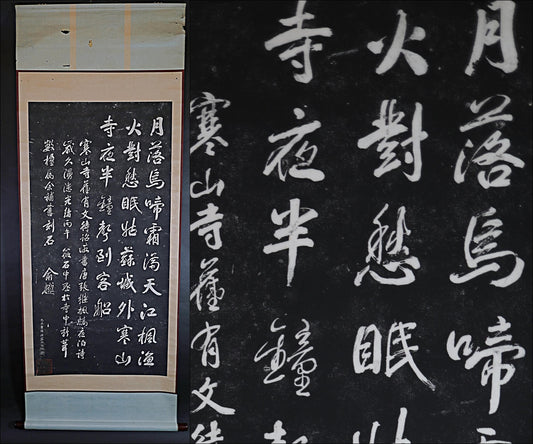 月落烏啼霜滿天江楓漁
火對愁眠姑蘇城外寒山
寺夜半鐘聲到客船
寒山寺舊有文待詔所書唐張繼楓橋夜泊詩
歲久漫漶光緒丙午筱石中丞於寺中新葺
數楹屬余補書刻石 俞樾
月落烏啼
火對愁眠姑
寺夜半鐘
寒山寺舊有文待